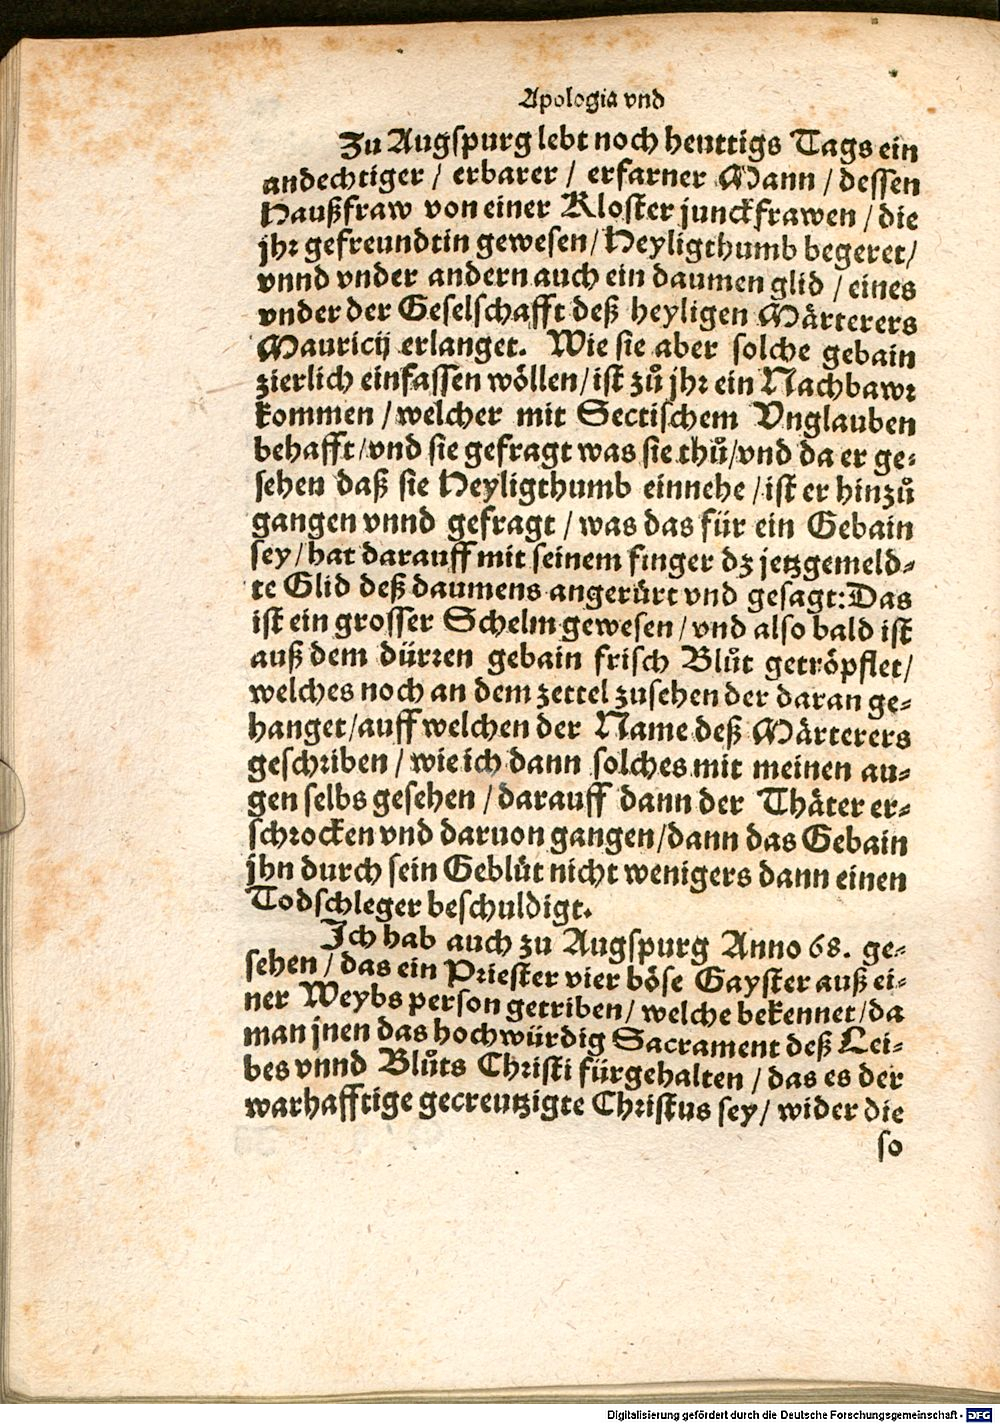 Apologia vnd
Zu Augspurg lebt noch heuttigs Tags ein
andechtiger / erbarer / erfarner Mann / dessen
Haußfraw von einer Kloster junckfrawen / die
jhr gefreundtin gewesen / Heyligthumb begeret /
vnnd vnder andern auch ein daumen glid / eines
vnder der Geselschafft deß heyligen Märterers
Mauricij erlanget. Wie sie aber solche gebain
zierlich einfassen wöllen / ist zů jhr ein Nachbawr
kommen / welcher mit Sectischem Vnglauben
behafft / vnd sie gefragt was sie thů / vnd da er ge-
sehen daß sie Heyligthumb einnehe / ist er hinzů
gangen vnnd gefragt / was das für ein Gebain
sey / hat darauff mit seinem finger dz jetzgemeld-
te Glid deß daumens angerürt vnd gesagt: Das
ist ein grosser Schelm gewesen / vnd also bald ist
auß dem dürren gebain frisch Blůt getröpflet /
welches noch an dem zettel zusehen der daran ge-
hanget / auff welchen der Name deß Märterers
geschriben / wie ich dann solches mit meinen au-
gen selbs gesehen / darauff dann der Thäter er-
schrocken vnd daruon gangen / dann das Gebain
jhn durch sein Geblüt nicht wenigers dann einen
Todschleger beschuldigt.
Ich hab auch zu Augspurg Anno 68. ge-
sehen / das ein Priester vier böse Gayster auß ei-
ner Weybs person getriben / welche bekennet / da
man jnen das hochwürdig Sacrament deß Lei-
bes vnnd Blůts Christi fürgehalten / das es der
warhafftige gecreutzigte Christus sey / wider die
so
Digitalisierung gefördert durch die Deutsche Forschungsgemeinschaft - DFG